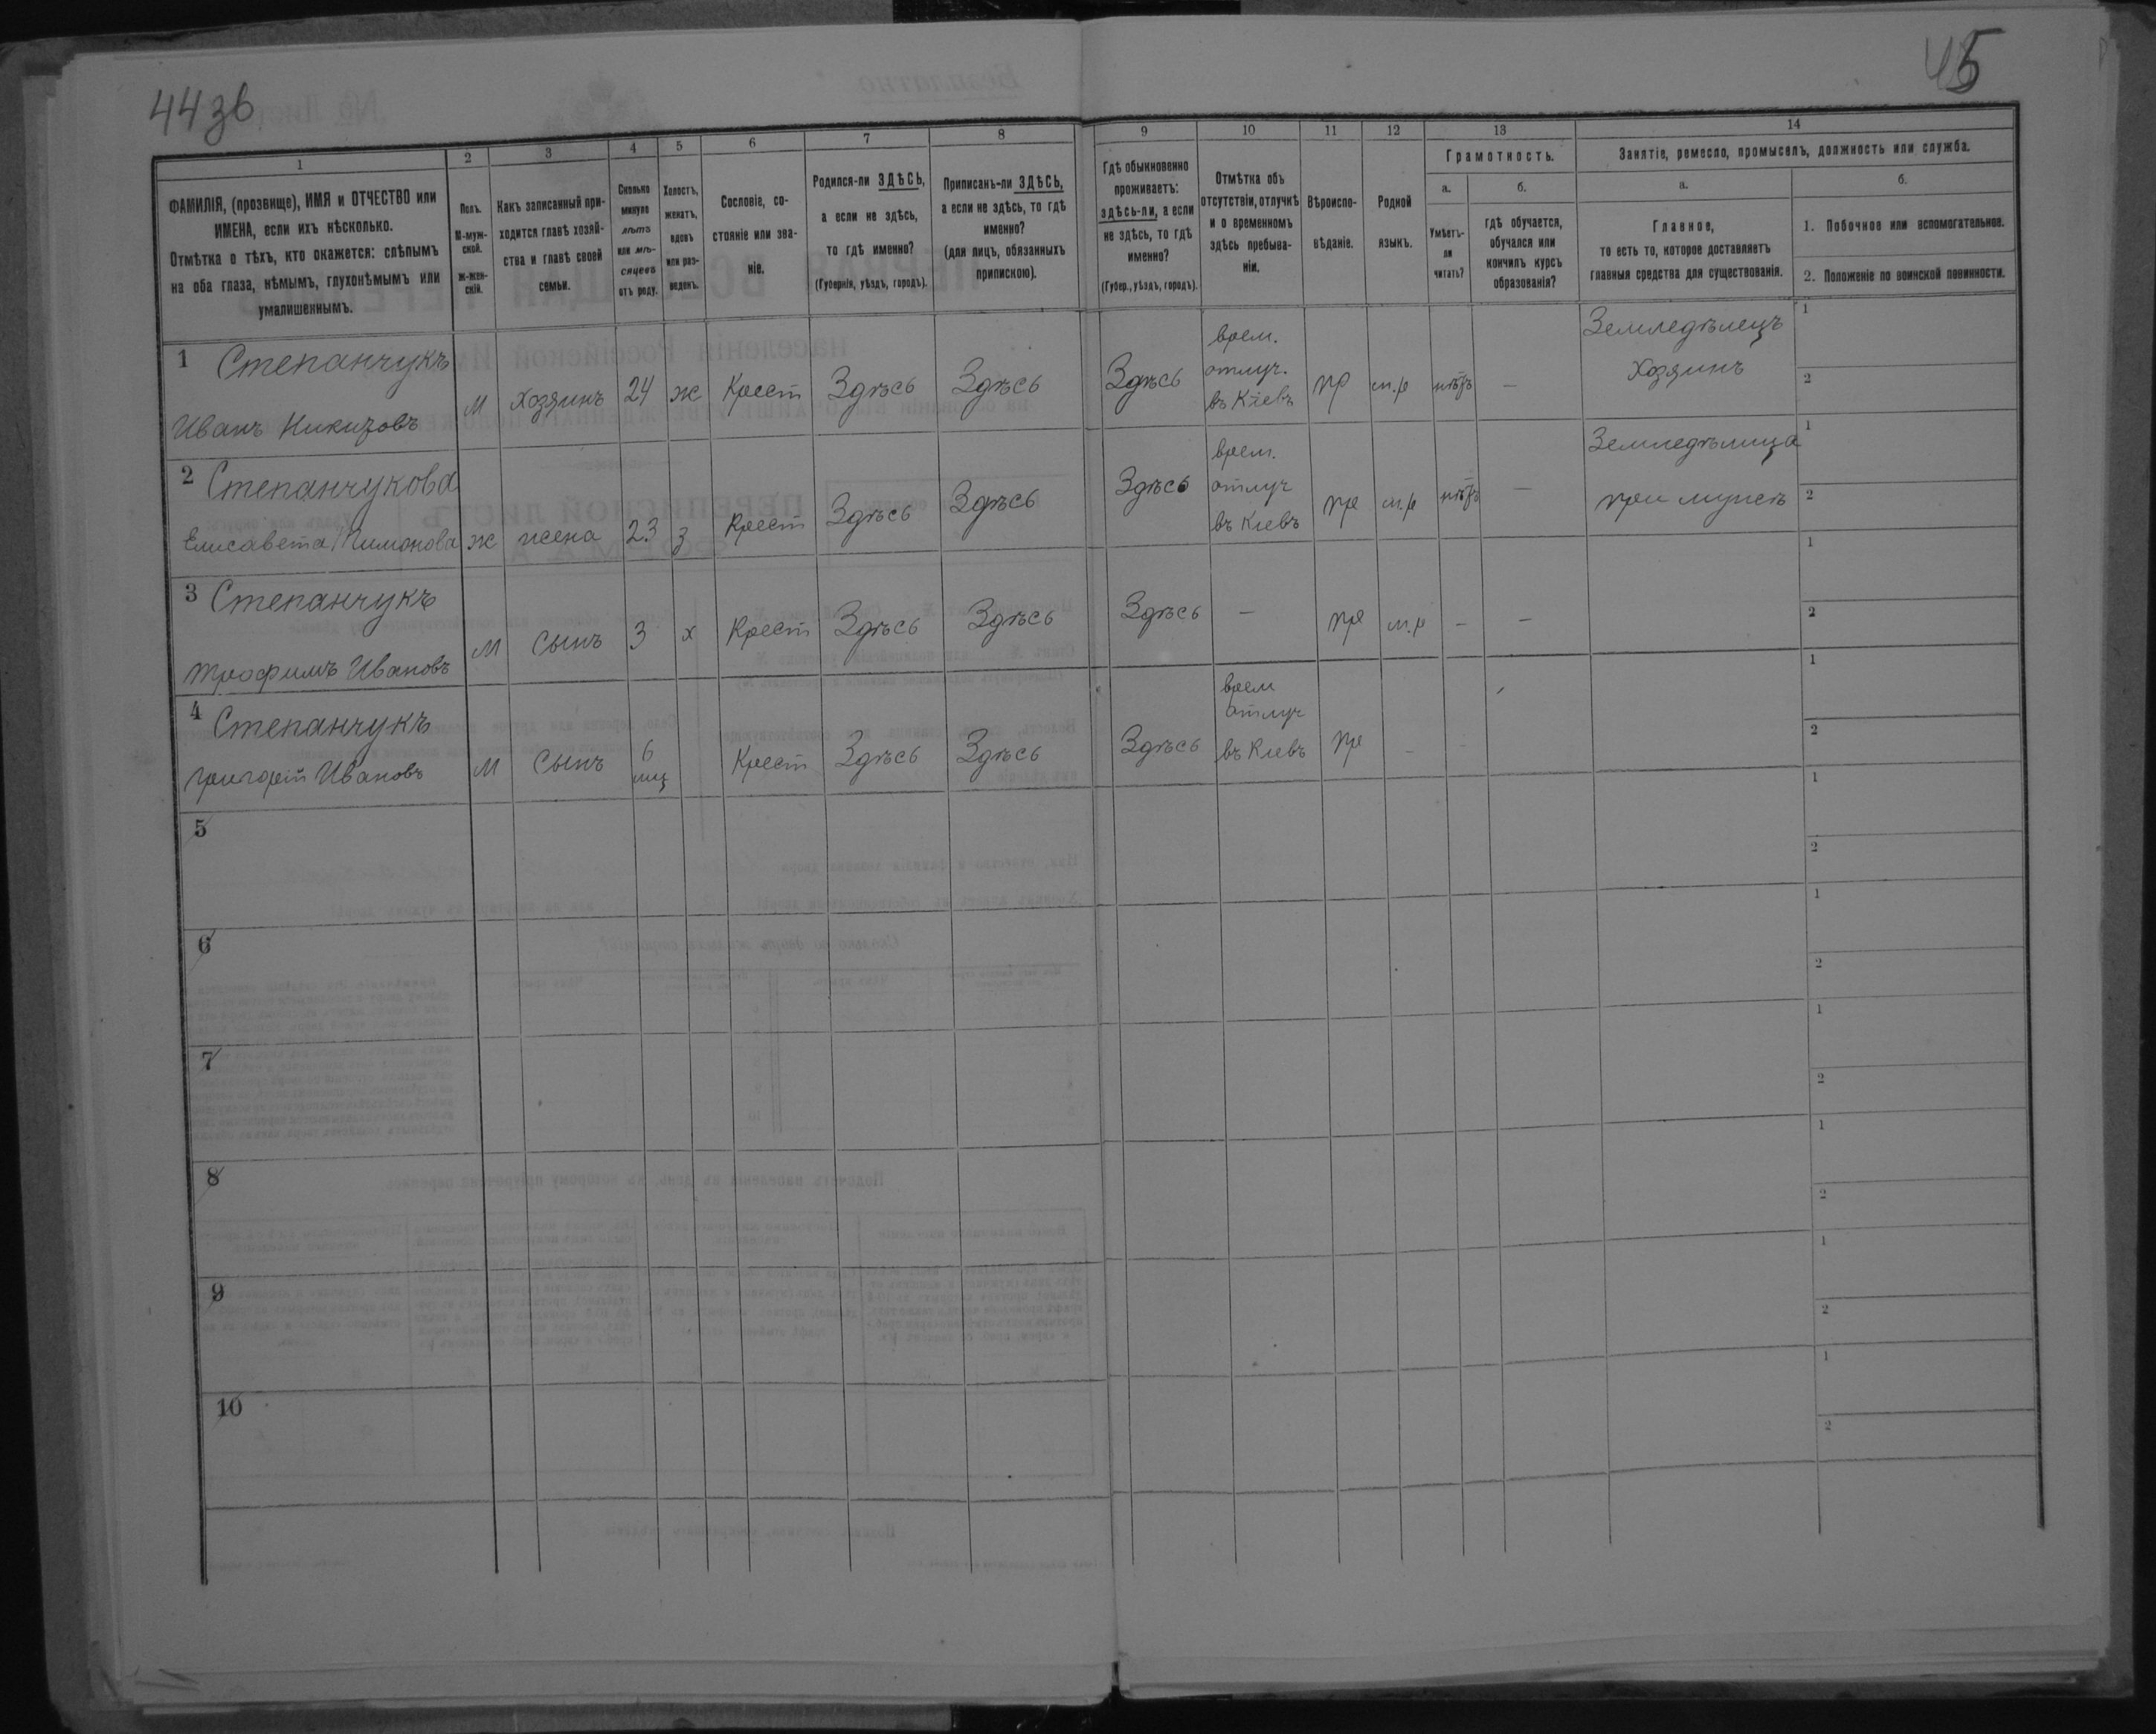 44 зв
45
1
2
3
4
5
6
7
8
9
10
11
12
13
14
ФАМИЛІЯ, (прозвище), ИМЯ и ОТЧЕСТВО или
ИМЕНА, если ихъ нѣсколько.
Отмѣтка о тѣхъ, кто окажется: слѣпымъ
на оба глаза, нѣмымъ, глухонѣмымъ или
умалишеннымъ.
Полъ.
М-муж-
ской.
Ж-жен-
скій.
Какъ записанный при-
ходится главѣ хозяй-
ства и главѣ своей
семьи.
Сколько
минуло
лѣтъ
или мѣ-
сяцевъ
отъ роду.
Холостъ,
женатъ,
вдовъ
или раз-
веденъ.
Сословіе, со-
стояніе или зва-
ніе.
Родился-ли ЗДѢСЬ,
а если не здѣсь,
то гдѣ именно?
(Губернія, уѣздъ, городъ).
Приписанъ-ли ЗДѢСЬ,
а если не здѣсь, то гдѣ
именно?
(для лицъ, обязанныхъ
припискою).
Гдѣ обыкновенно
проживаетъ:
здѣсь-ли, а если
не здѣсь, то гдѣ
именно?
(Губер., уѣздъ, городъ).
Отмѣтка объ
отсутствіи, отлучкѣ
и о временномъ
здѣсь пребыва-
ніи.
Вѣроиспо-
вѣданіе.
Родной
языкъ.
Грамотность.
а.
Умѣетъ-
ли
читать?
б.
гдѣ обучается,
обучался или
кончилъ курсъ
образованія?
Занятіе, ремесло, промыселъ, должность или служба.
а.
Главное,
то есть то, которое доставляетъ
главныя средства для существованія.
б.
1. Побочное или вспомогательное.
2. Положеніе по воинской повинности.
1 Степанчукъ
Иванъ Никитовъ
М Хозяинъ 24 ж Крест Здѣсь Здѣсь Здѣсь
врем.
отлуч.
въ Кіевъ
пр м.р нѣтъ —
Земледѣлецъ
Хозяинъ
1
2
2 Степанчукова
Елисавета
ж жена 23 з Крест Здѣсь Здѣсь Здѣсь
врем.
отлуч
въ Кіевъ
пр м.р нѣтъ —
Земледѣлица
при мужѣ
1
2
3 Степанчукъ
Трофимъ Ивановъ
М Сынъ 3 х Крест Здѣсь Здѣсь Здѣсь — пр м.р — —
1
2
4 Степанчукъ
Григорій Ивановъ
М Сынъ 6
мц
Крест Здѣсь Здѣсь Здѣсь
врем
отлуч
въ Кіевъ
пр - -
1
2
5
1
2
6
1
2
7
1
2
8
1
2
9
1
2
10
1
2